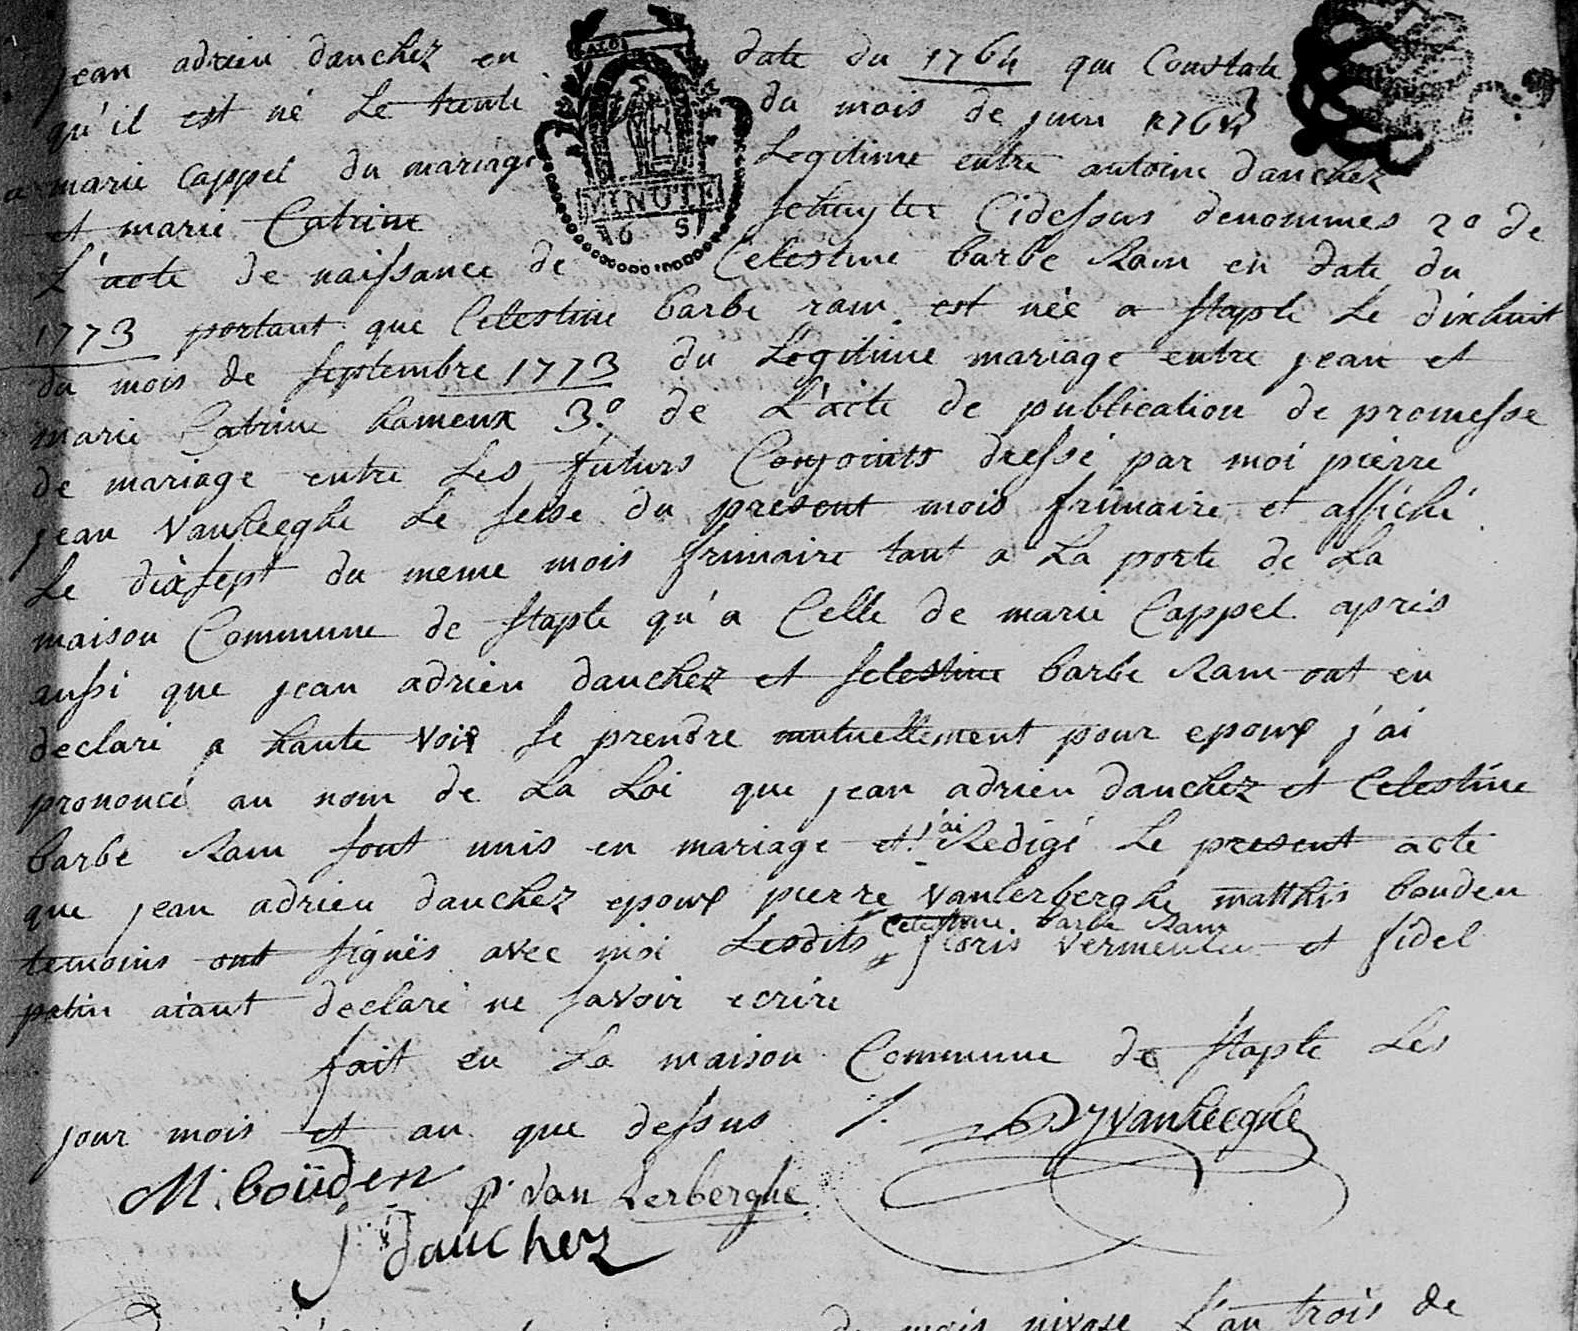 jean adrien danchez en date du 1764 qui Constate
qu'il est né Le trente du mois de juin 1764
a marie Cappel du mariage Legitime entre antoine danchez
et marie Catrine schuyter Cidessous denommes 2o de
L'acte de naissance de Celestine barbe Ram en date du
1773 portant que Celestine barbe ram est née a staple Le dixhuit
du mois de septembre 1773 du Legitime mariage entre jean et
marie Catrine hameux 3.o de L'acte de publication de promesse
de mariage entre Les futurs Conjoints dressé par moi pierre
jean Vanheeghe Le seise du present mois frimaire et affiché
Le dixsept du meme mois frimaire tant a La porte de La
maison Commune de staple qu'a Celle de marie Cappel apres
aussi que jean adrien danchez et selestine barbe Ram ont en
declaré a haute voix se prendre mutuellement pour epoux j'ai
prononcé au nom de La Loi que jean adrien danchez et Celestine
barbe Ram sont unis en mariage et j'ai Redigé Le present acte
que jean adrien danchez epoux pierre vanlerberghe matthis bouden
Celestine barbe Ram
temoins ont signés avec moi Lesdits floris vermeulen et fidel
patin aiant declaré ne savoir ecrire
fait en La maison Commune de staple Les
jour mois et an que dessus /.
PJVanheeghe
M. boüden p. van Lerberghe
j: danchez
mois nivose L'an trois de
MINUTE
6 S